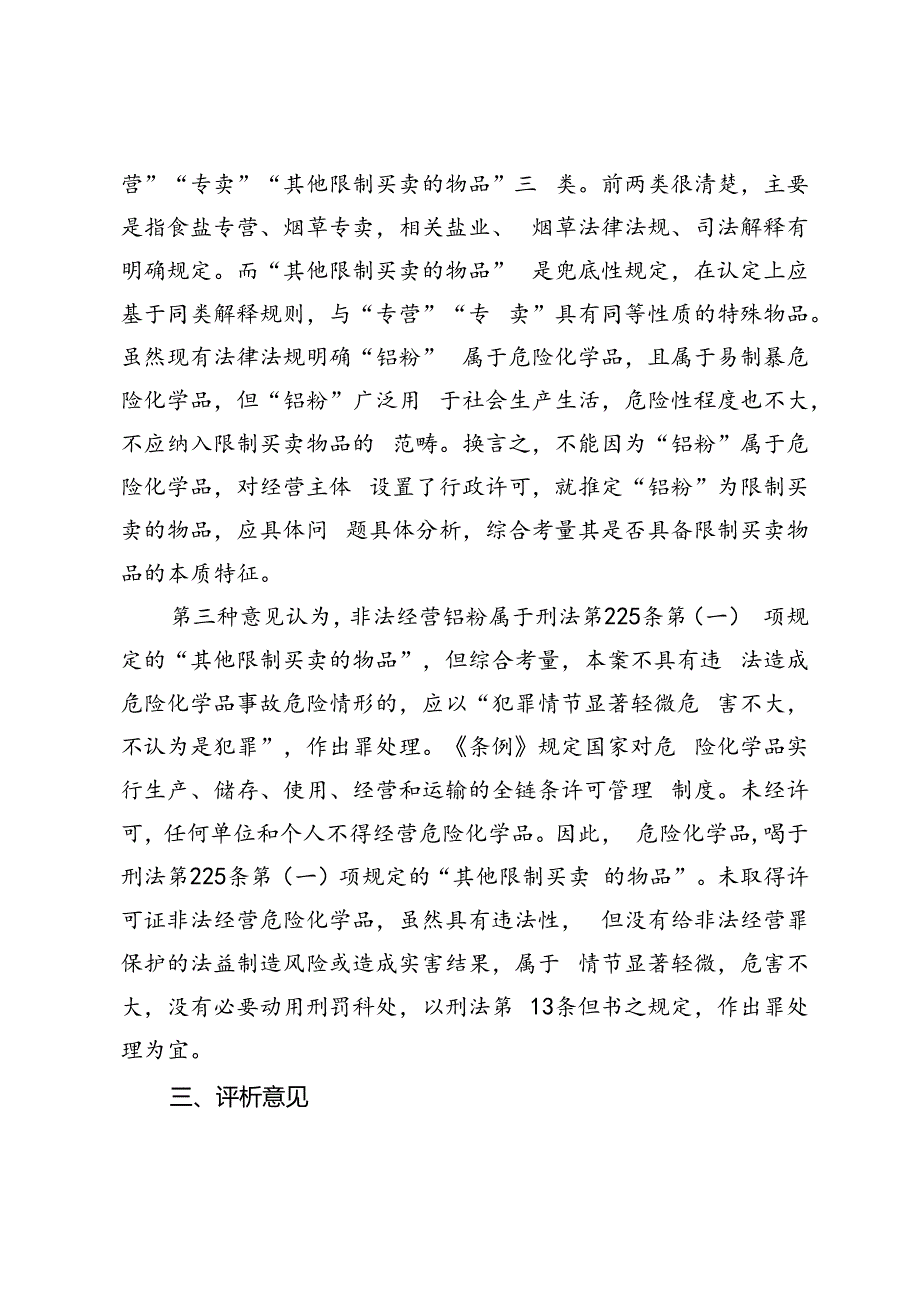 营”“专卖”“其他限制买卖的物品”三 类。前两类很清楚，主要
是指食盐专营、烟草专卖，相关盐业、 烟草法律法规、司法解释有
明确规定。而“其他限制买卖的物品” 是兜底性规定，在认定上应
基于同类解释规则，与“专营”“专 卖”具有同等性质的特殊物品。
虽然现有法律法规明确“铝粉” 属于危险化学品，且属于易制暴危
险化学品，但“铝粉”广泛用 于社会生产生活，危险性程度也不大，
不应纳入限制买卖物品的 范畴。换言之，不能因为“铝粉”属于危
险化学品，对经营主体 设置了行政许可，就推定“铝粉”为限制买
卖的物品，应具体问 题具体分析，综合考量其是否具备限制买卖物
品的本质特征。
第三种意见认为，非法经营铝粉属于刑法第225条第（一） 项规
定的“其他限制买卖的物品”，但综合考量，本案不具有违 法造成
危险化学品事故危险情形的，应以“犯罪情节显著轻微危 害不大，
不认为是犯罪”，作出罪处理。《条例》规定国家对危 险化学品实
行生产、储存、使用、经营和运输的全链条许可管理 制度。未经许
可，任何单位和个人不得经营危险化学品。因此， 危险化学品,喝于
刑法第225条第（一）项规定的“其他限制买卖 的物品”。未取得许
可证非法经营危险化学品，虽然具有违法性， 但没有给非法经营罪
保护的法益制造风险或造成实害结果，属于 情节显著轻微，危害不
大，没有必要动用刑罚科处，以刑法第 13条但书之规定，作出罪处
理为宜。
三、评析意见